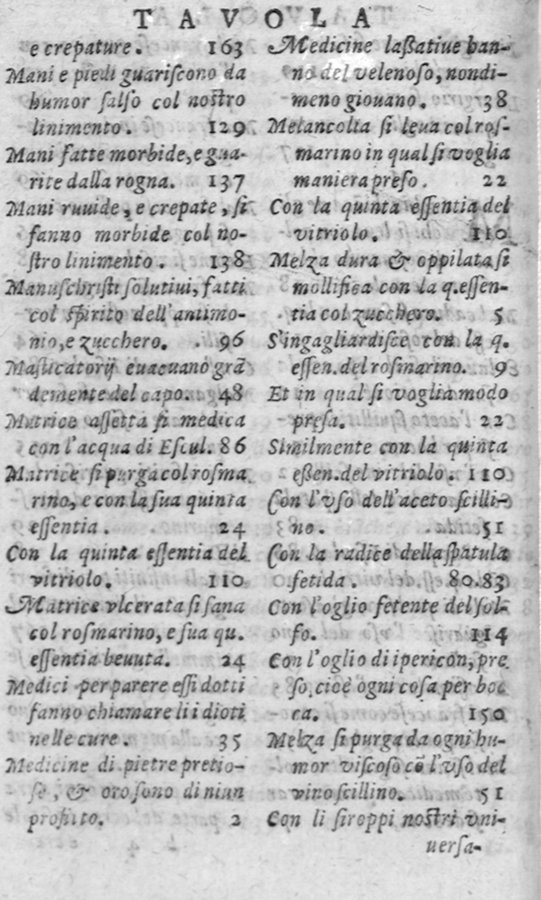 TAVOLA
e crepature. 163
Mani e piedi guariſcono da
humor ſalſo col noſtro
linimento. 129
Mani fatte morbide, e gua-
rite dalla rogna. 137
Mani ruuide, e crepate, ſi
fanno morbide col no-
ſtro linimento. 138
Manuſchriſti ſolutiui, fatti
col ſpirito dell'antimo-
nio, e zucchero. 96
Maſticatorij euacuano grã
demente del capo. 48
Matrice aſſetta ſi medica
con l'acqua di Eſcul. 86
Matrice ſi purga col roſma
rino, e con la ſua quinta
eſſentia. 24
Con la quinta eſſentia del
vitriolo. 110
Matrice vlcerata ſi ſana
col roſmarino, e ſua qu.
eſſentia beuuta. 24
Medici per parere eſſi dotti
fanno chiamare li idioti
nelle cure. 35
Medicine di pietre pretio-
ſe, & oro ſono di niun
profitto. 2
Medicine laßatiue han-
no del velenoſo, nondi-
meno giouano. 38
Melancolia ſi leua col roſ-
marino in qual ſi voglia
maniera preſo. 22
Con la quinta eſſentia del
vitriolo. 110
Melza dura & oppilata ſi
mollifica con la q.eſſen-
tia col zucchero. 5
S'ingagliardiſce con la q.
eſſen. del roſmarino. 9
Et in qual ſi voglia modo
preſa. 22
Similmente con la quinta
eßen. del vitriolo. 110
Con l'vſo dell'aceto ſcilli-
no. 51
Con la radice della ſpatula
fetida. 80.83
Con l'oglio fetente del ſol-
fo. 114
Con l'oglio di ipericon, pre
ſo, cioè ogni coſa per boc
ca. 150
Melza ſi purga da ogni hu-
mor viſcoſo cõ l'vſo del
vino ſcillino. 51
Con li ſiroppi noſtri vni-
uerſa-